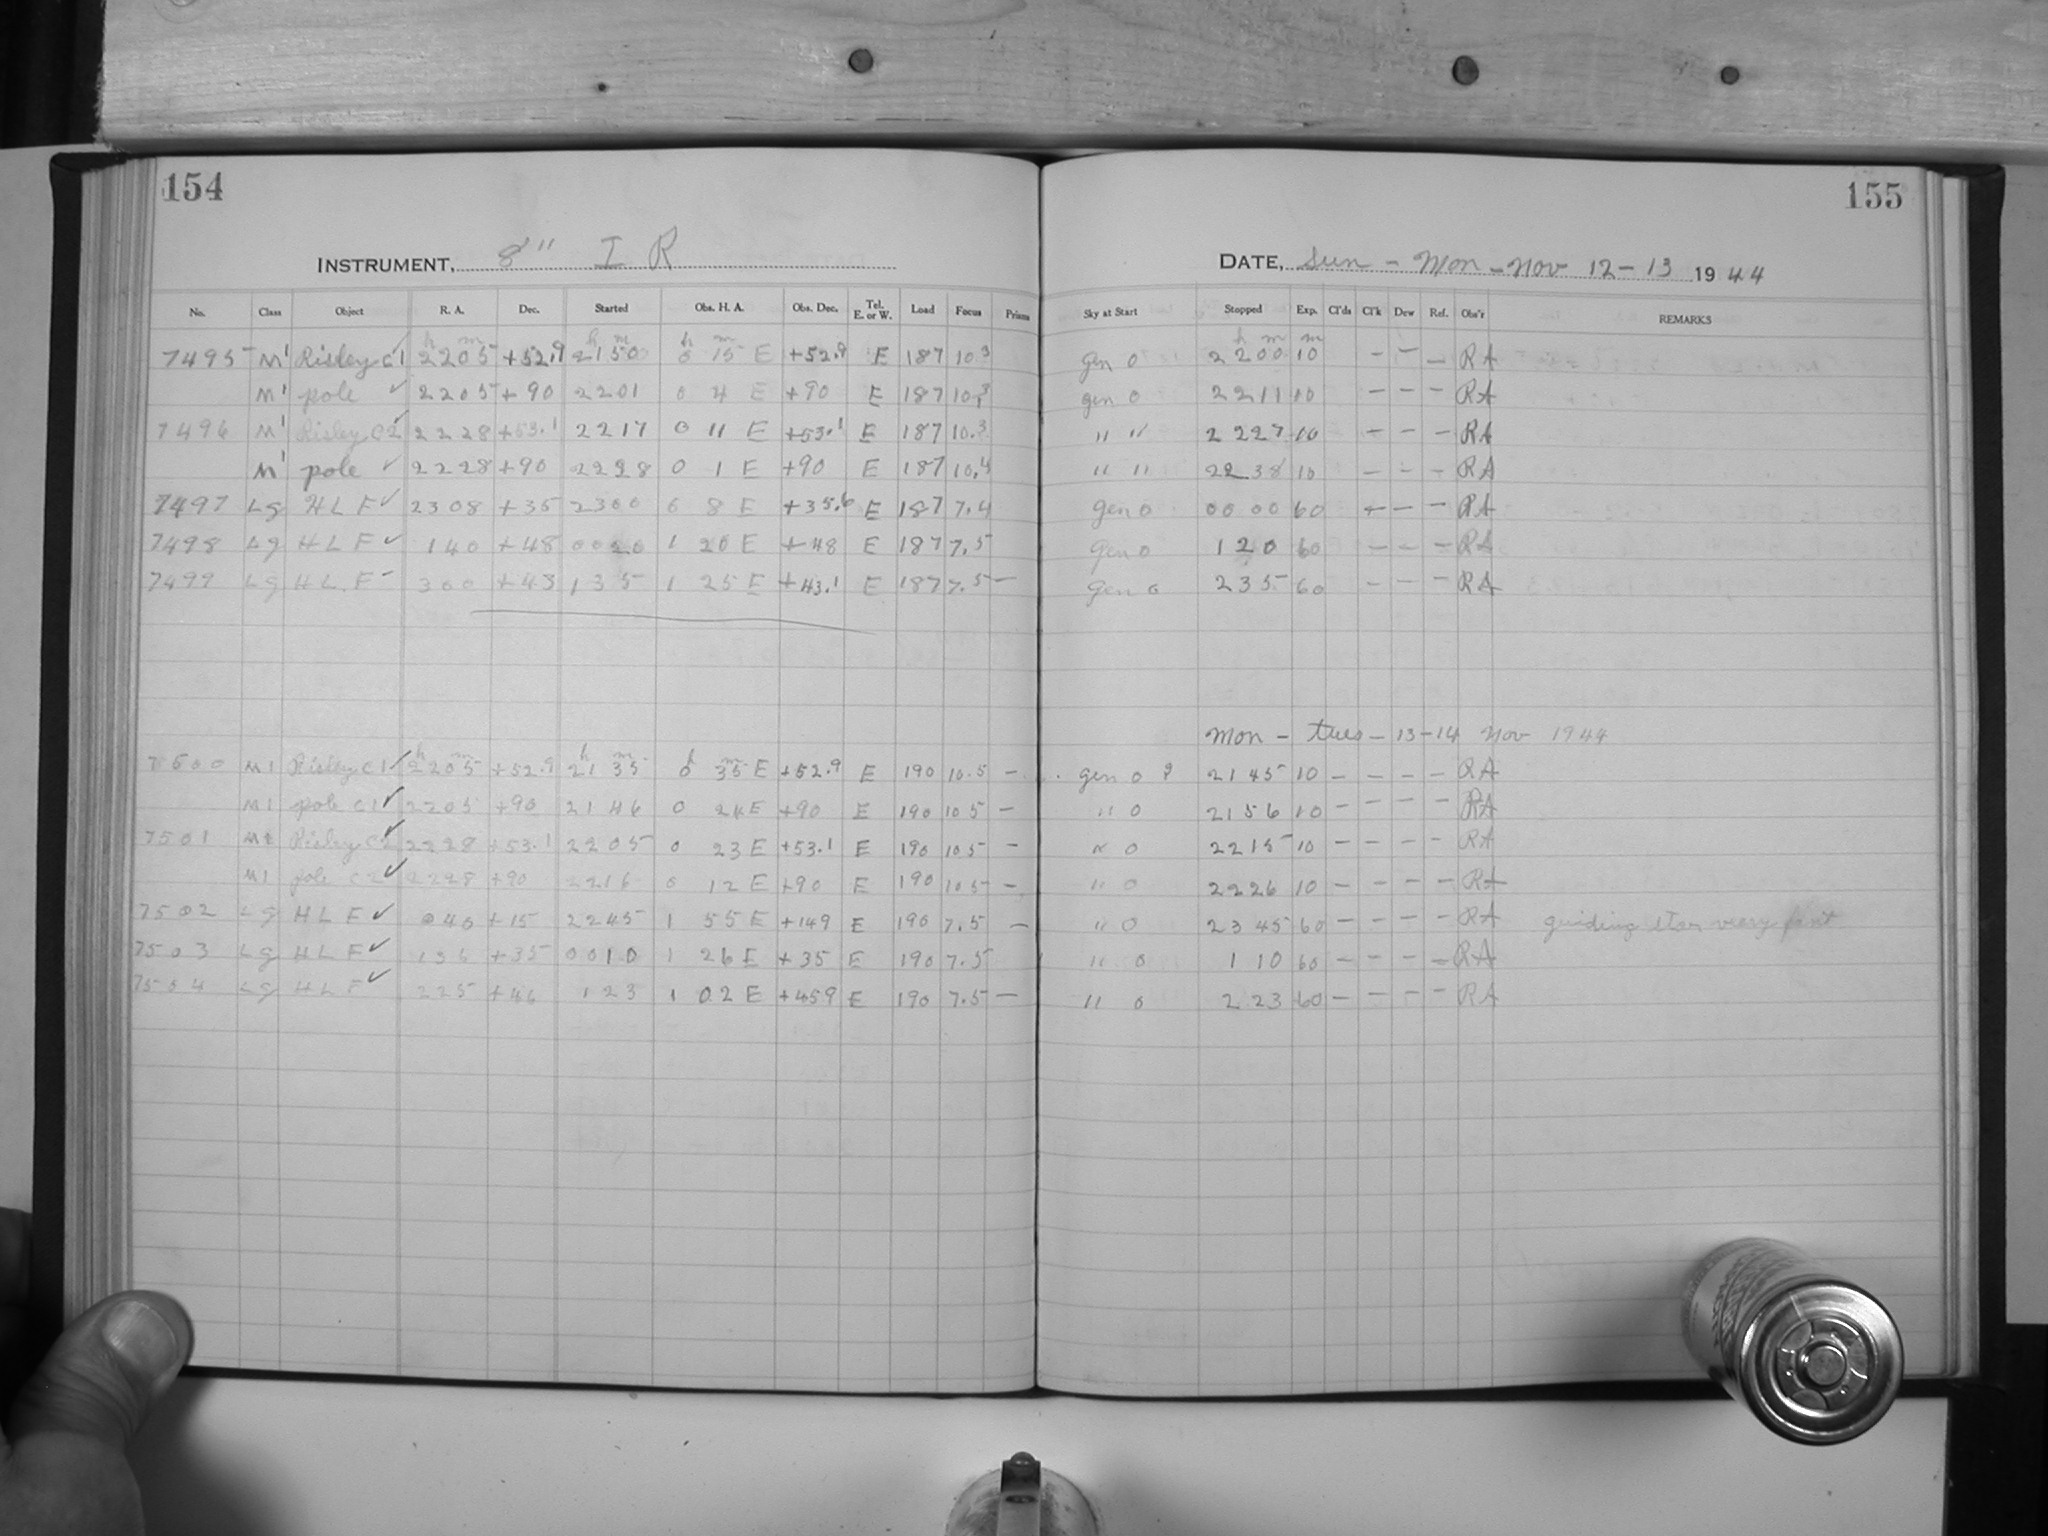 154
155
INSTRUMENT, 8" I R
DATE, Sun - Mon - Nov 12 - 13 1944
No. Class Object R. A. Dec. Started Obs. H. A. Obs. Dec. Tel. E. or W. Load Focus Prisms Sky at Start Stopped Exp. Cl'ds Cl'k Dew Ref. Obs'r REMARKS
h m h m h m h m m
7495 M1 Risley C1 ✓ 2205 +52.9 2150 0 15 E +52.9 E 187 10.3 gen 0 2200 10 - - - RA
M1 pole ✓ 2205 +90 2201 0 4 E +90 E 187 gen 0 2211 10 - - - RA
7496 M1 Risley C2 ✓ 2228 +53.1 2217 0 11 E +53.1 E 187 10.3 " " 2227 10 - - - RA
M1 pole ✓ 2228 +90 2228 0 1 E +90 E 187 10.4 " " 2238 10 - - - RA
7497 Lg H L F ✓ 2308 +35 2300 0 8 E +35.6 E 187 7.4 gen 0 0000 60 - - - RA
7498 Lg H L F ✓ 140 +48 0020 1 20 E +48 E 187 7.5 gen 0 120 60 - - - RA
7499 Lg H L F - 300 +43 135 1 25 E +43.1 E 187 7.5 - gen 0 235 60 - - - RA
Mon - tues - 13-14 Nov 1944
h m h m h
7500 M1 Risley C1 ✓ 2205 +52.9 2135 0 35 E +52.9 E 190 10.5 - gen 0 ? 2145 10 - - - - RA
M1 pole C1 ✓ 2205 +90 2146 0 24 E +90 E 190 10.5 - " 0 2156 10 - - - - RA
7501 M1 Risley C2 ✓ 2228 +53.1 2205 0 23 E +53.1 E 190 10.5 - " 0 2215 10 - - - - RA
M1 pole C2 ✓ 2228 +90 2216 0 12 E +90 E 190 10.5 - " 0 2226 10 - - - - RA
7502 Lg H L F ✓ 040 +15 2245 1 55 E +149 E 190 7.5 - " 0 2345 60 - - - - RA guiding star very faint
7503 Lg H L F ✓ 136 +35 0010 1 26 E +35 E 190 7.5 " 0 110 60 - - - - RA
7504 Lg H L F ✓ 225 +46 123 1 02 E +459 E 190 7.5 - " 0 223 60 - - - - RA